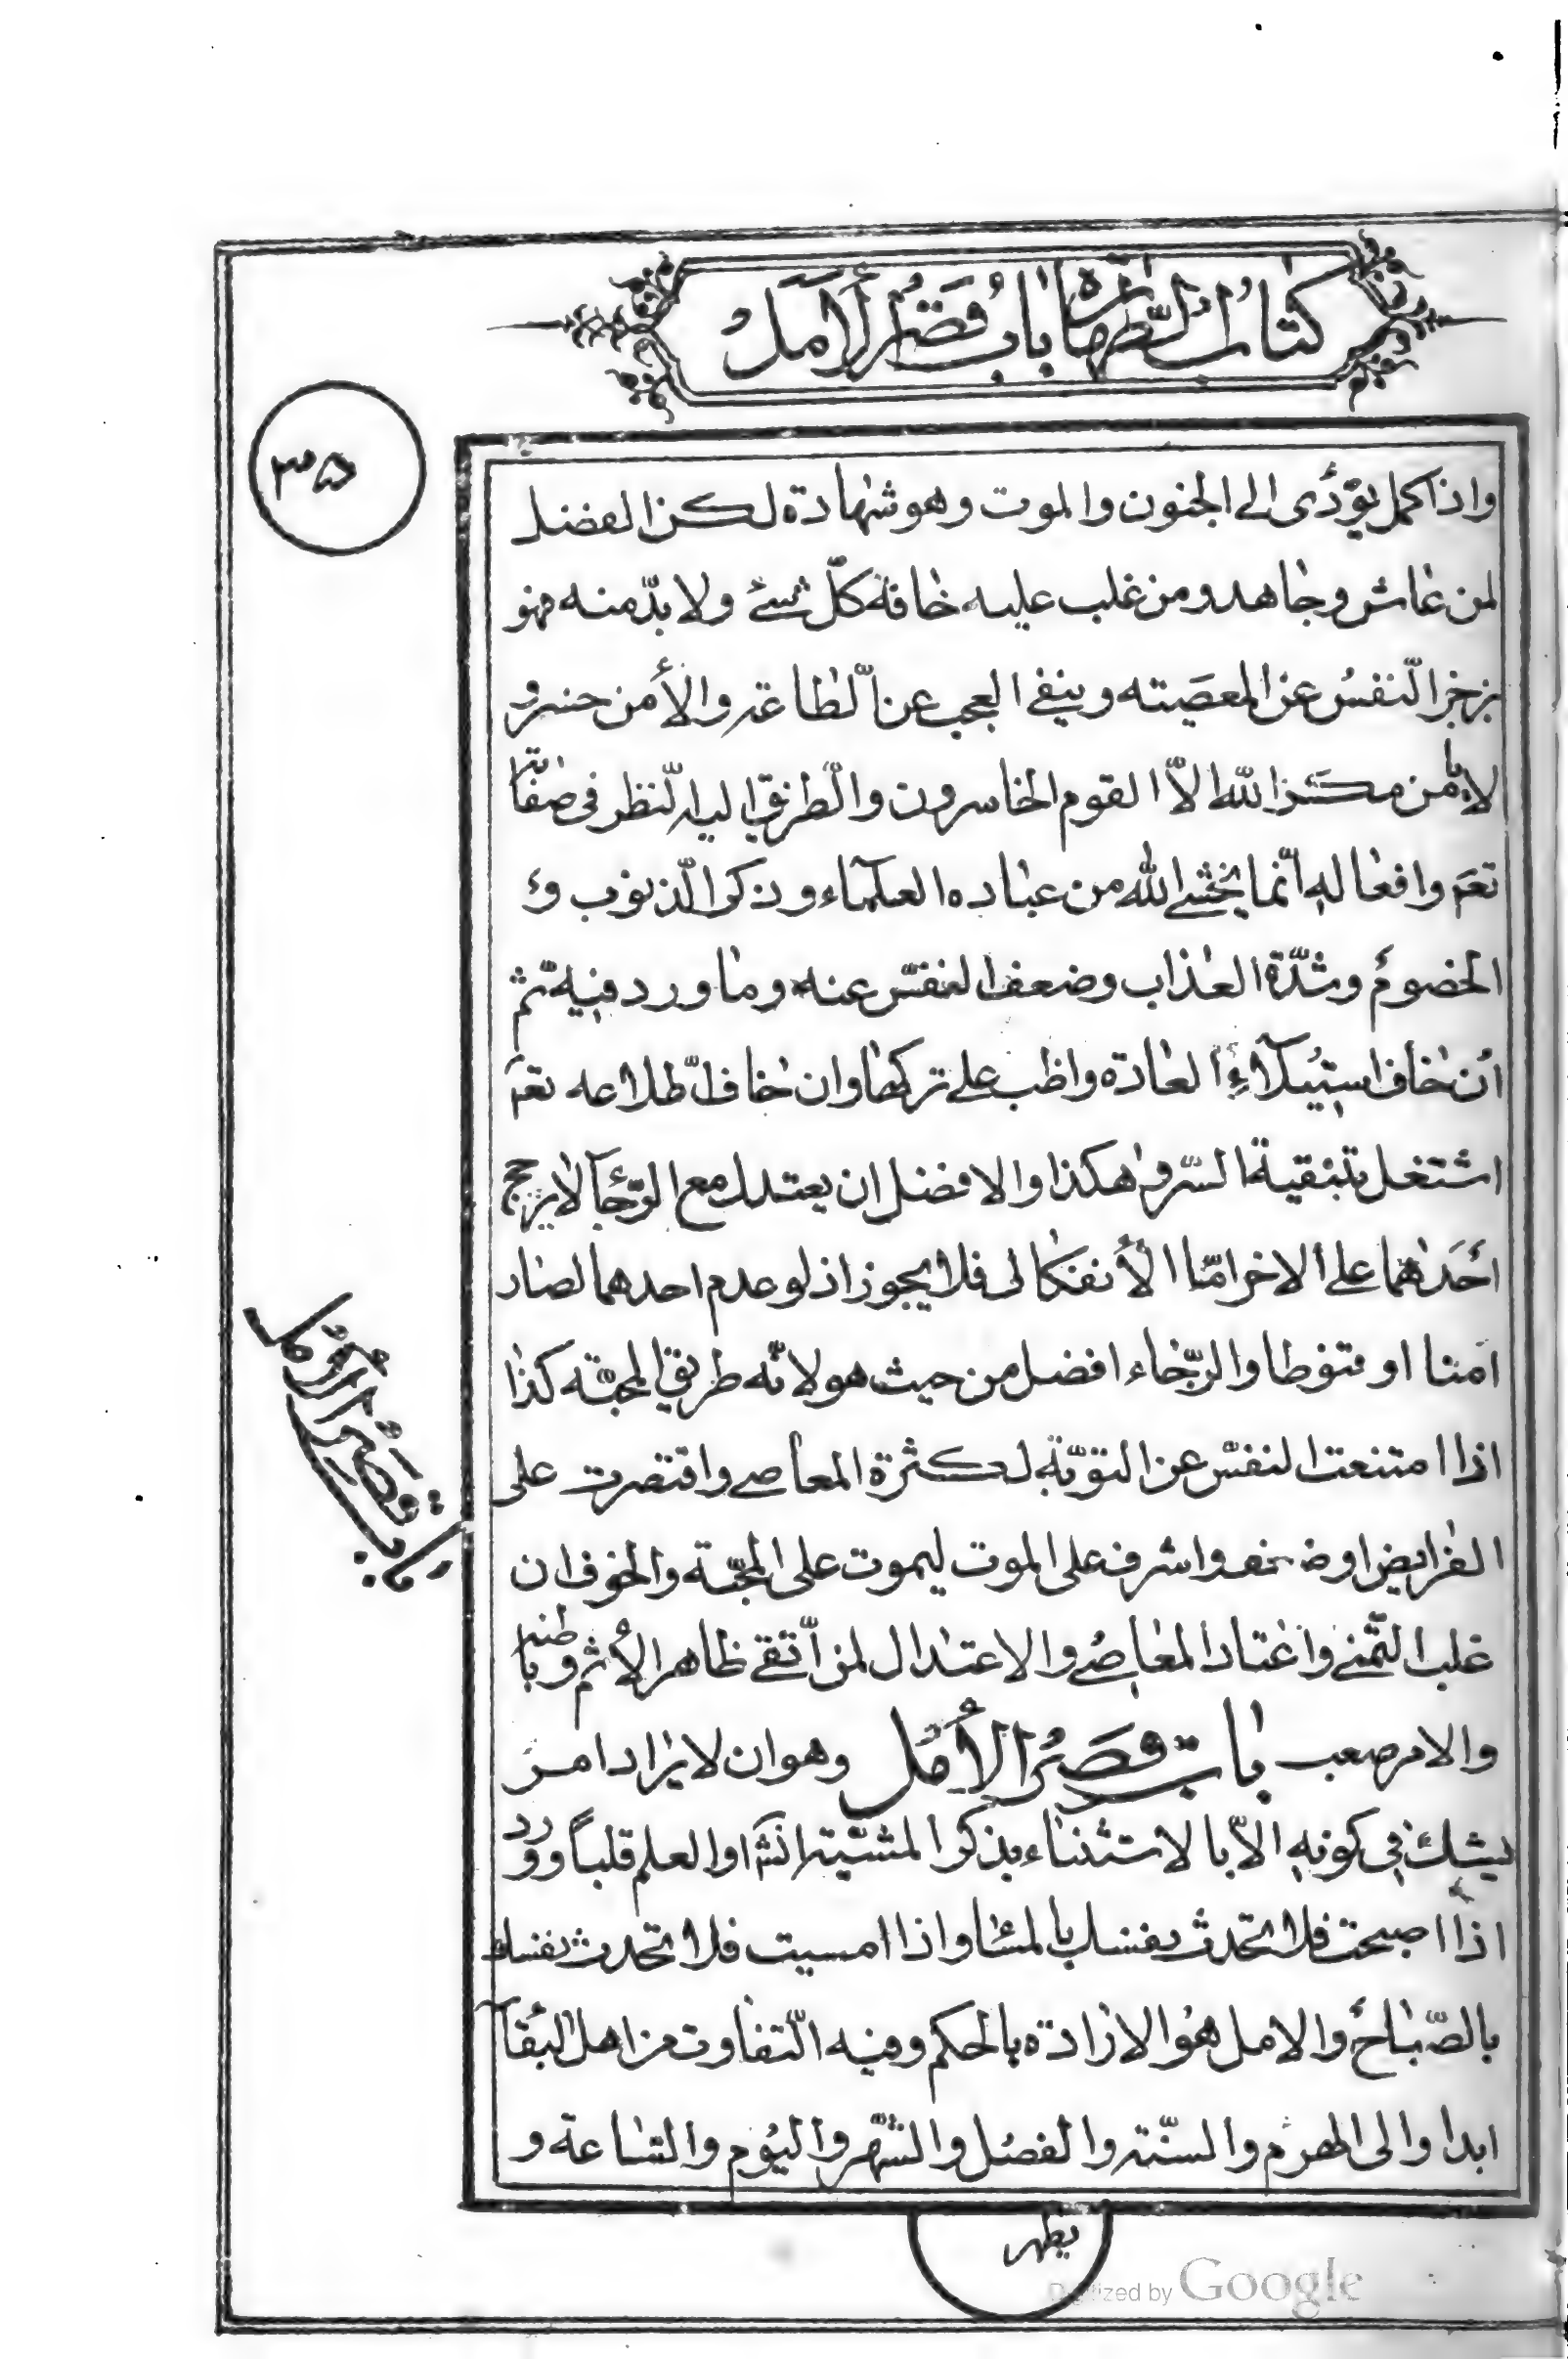 كتاب الطهارة باب قصر الأمل
٣٥
واذا كمل يؤدى الى الجنون والموت وهو شهادة لكن الفضل
لمن عاش وجاهد ومن غلب عليه خافه كلّ شئ ولا بدّ منه فهو
يزجر النفس عن المعصيته وينفى العجب عن الطاعة والأمن خسر و
لا يأمن مكر الله الاّ القوم الخاسرون والطريق اليه النظر فى صفاته
تعم وافعاله انّما يخشى الله من عباده العلماء وذكر الذنوب و
الخصوم وشدّة العذاب وضعف النفس عنه وما ورد فيه ثم
ان خاف استيلاء العادة واظب على تركها وان خاف اطلاعه تعم
اشتغل بتنقية السرّ وهكذا والافضل ان يعتدل مع الرّجآ لا يرجح
احدهما على الاخر امّا الأنفكاك فلا يجوز اذ لو عدم احدهما لصار
امنا او قنوطا والرّجاء افضل من حيث هو لانّه طريق المحبّة كذا
اذا امتنعت النفس عن التوبة لكثرة المعاصى واقتصرت على
الفرايض او ضعف واشرف على الموت ليموت على المحبّة والخوف ان
غلب التمنّى واعتاد المعاصى والاعتدال لمن اتّقى ظاهر الأثم وباطنه
والامر صعب باب قصر الأمل وهو ان لا يراد امر
يشك فى كونه الاّ بالاستثناء بذكر المشيّة انشا او العلم قلبا وورد
اذا اصبحت فلا تحدث نفسك بالمسا واذا امسيت فلا تحدث نفسك
بالصّباح والامل هو الارادة بالحكم وفيه التفاوت من اهل البقآ
ابدا والى الهرم والسنة والفصل والشهر واليوم والساعة و
يظهر
باب قصر الأمل
Digitized by Google